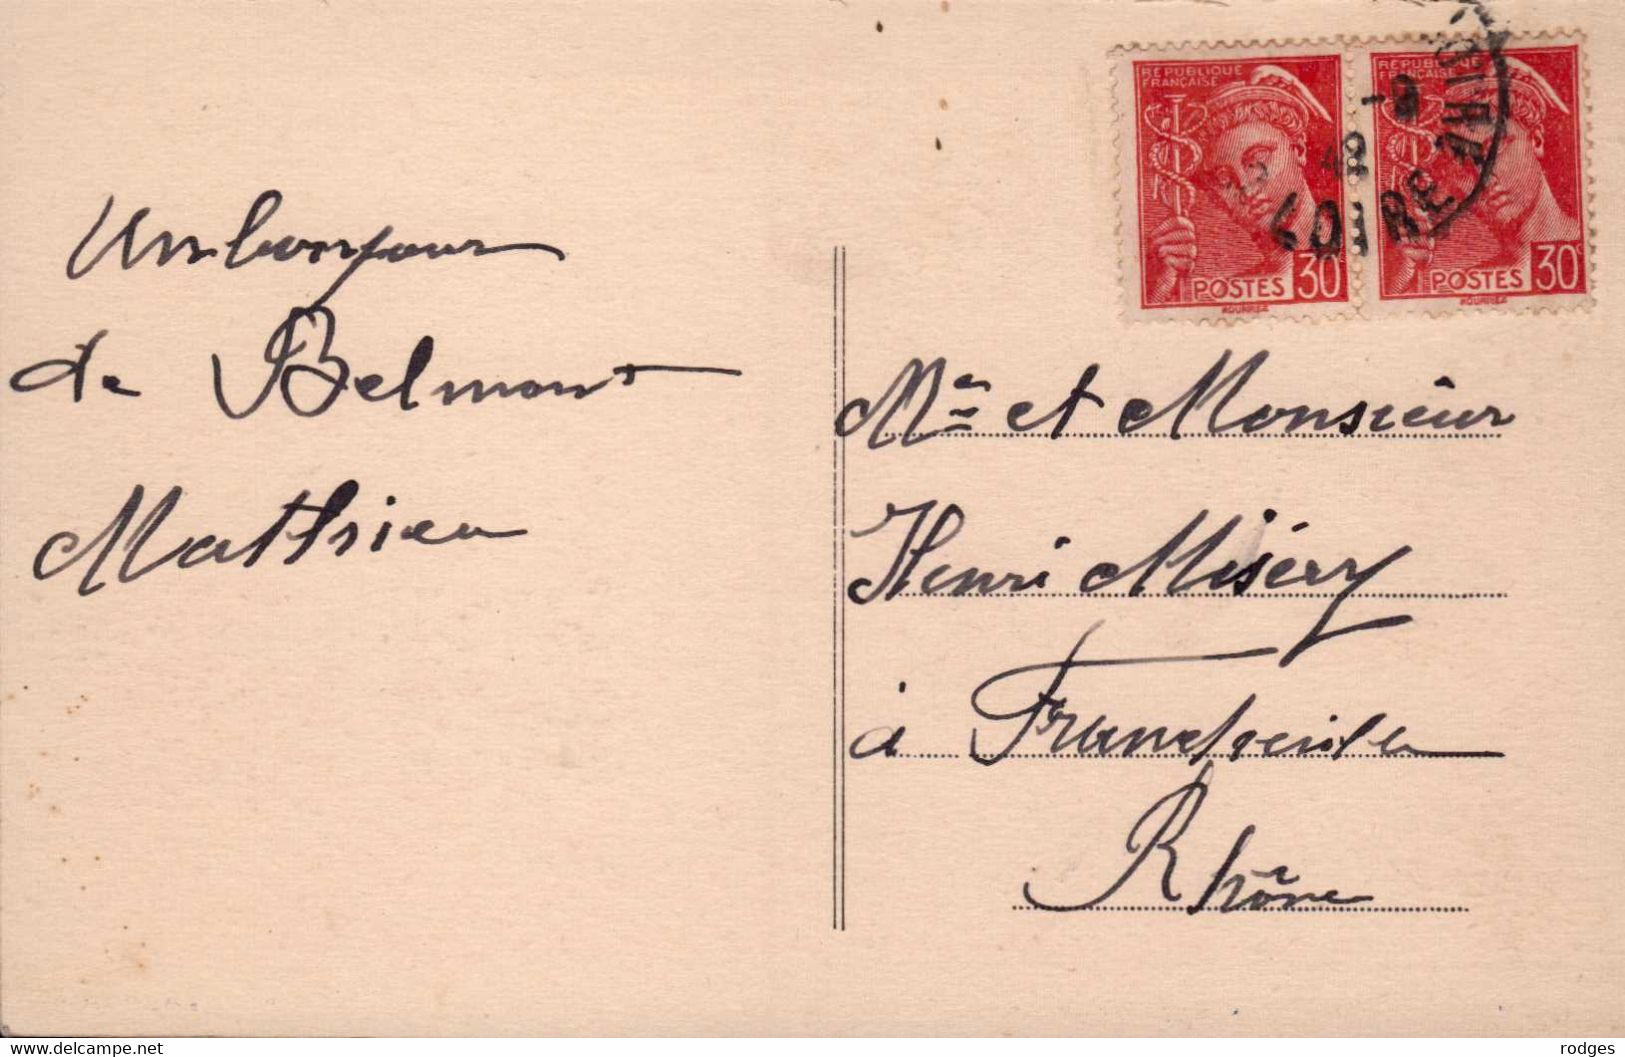 Un bonjour
de Belmont
Mathieu
RÉPUBLIQUE
FRANÇAISE
POSTES 30c
RÉPUBLIQUE
FRANÇAISE
POSTES 30c
LOIRE
Me et Monsieur
Henri Misery
à Francheville
Rhône
rodges